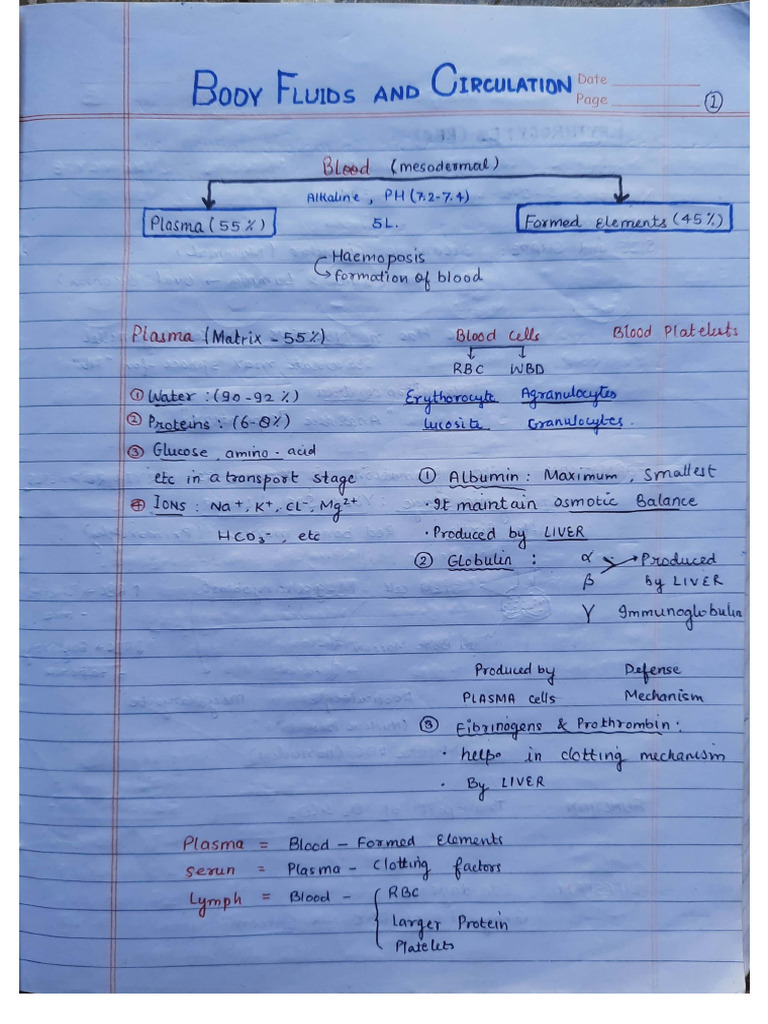 BODY FLUIDS AND CIRCULATION
Date
Page
1
Blood (mesodermal)
Alkaline, PH (7.2-7.4)
Plasma (55%)
5L.
Formed elements (45%)
Haemoposis
formation of blood
Plasma (Matrix - 55%)
Blood cells
Blood Platelets
RBC WBD
① Water : (90-92 %)
Erythorocyte Agranulocytes
② Proteins : (6-8%)
lucosite Granulocytes.
③ Glucose, amino-acid
etc in a transport stage
① Albumin : Maximum, smallest
④ Ions : Na⁺, K⁺, CL⁻, Mg²⁺
· It maintain osmotic Balance
HCO₃⁻, etc
· Produced by LIVER
② Globulin : α → Produced
β by LIVER
γ Immunoglobulin
Produced by Defense
PLASMA cells Mechanism
③ Fibrinogens & Prothrombin :
· helps in clotting mechanism
· By LIVER
Plasma = Blood - Formed Elements
serun = Plasma - Clotting factors
Lymph = Blood - { RBC
Larger Protein
Platelets